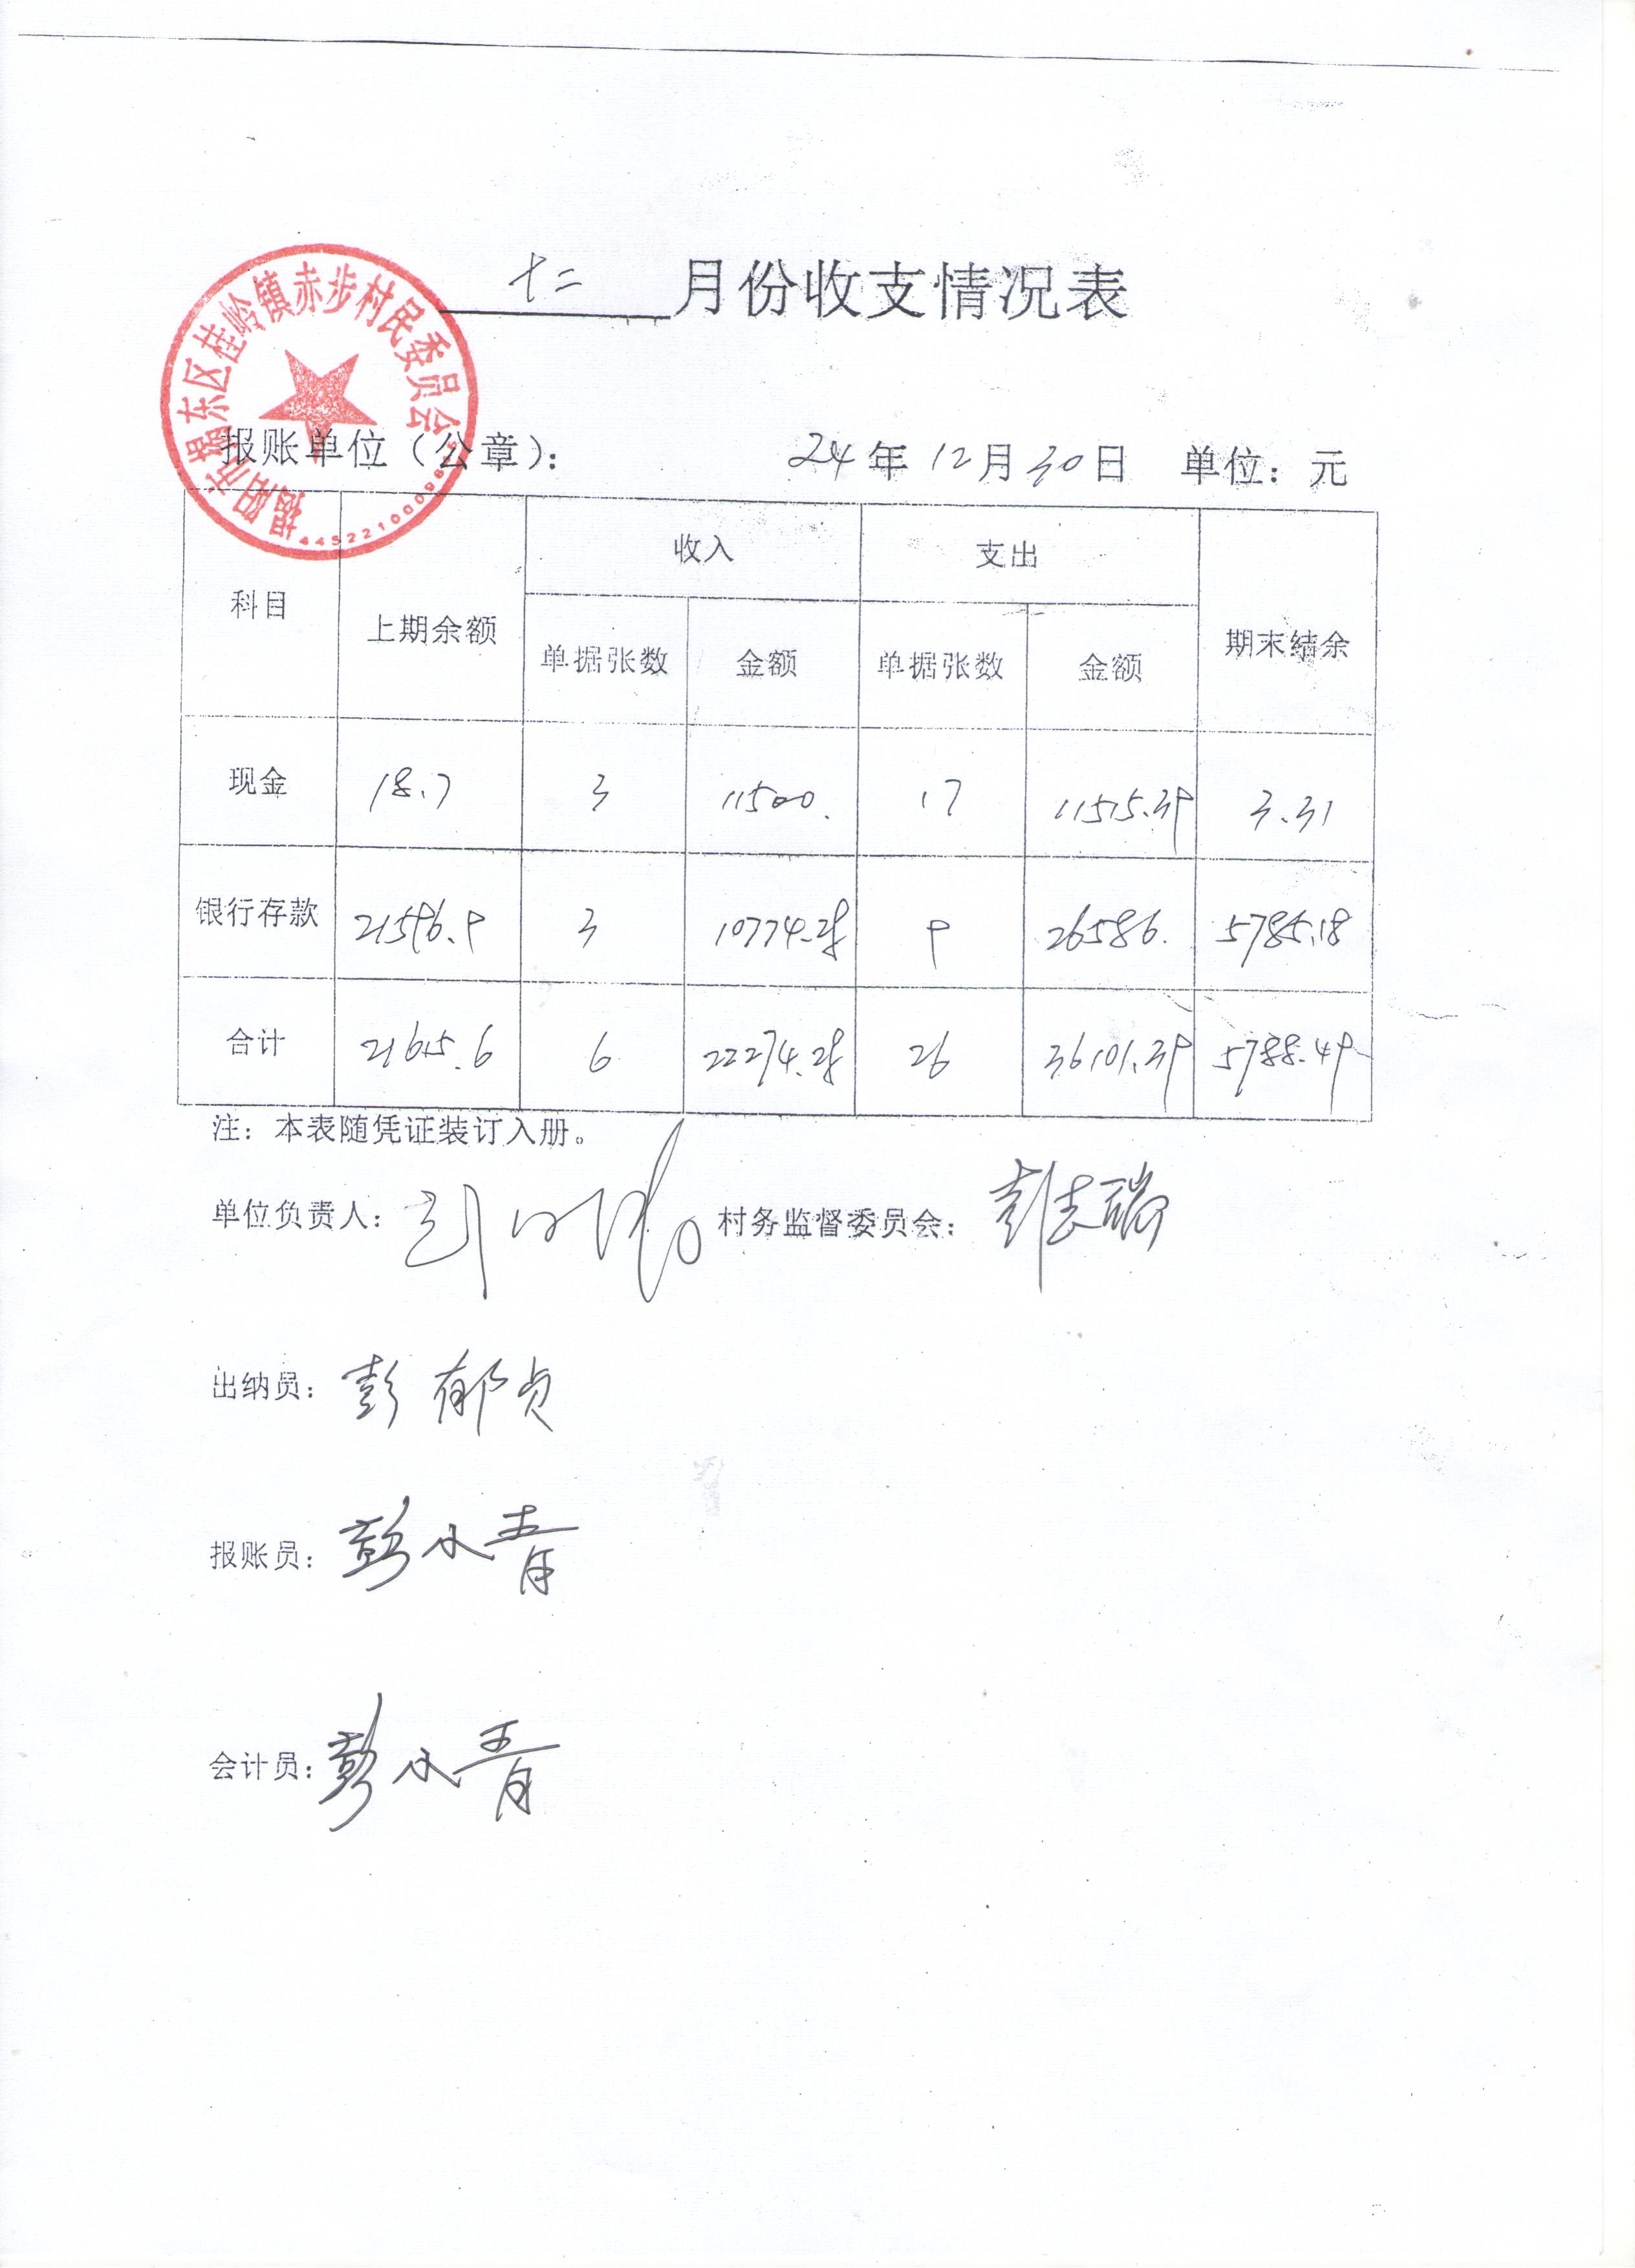 揭阳市揭东区桂岭镇赤步村民委员会
十二月份收支情况表
报账单位（公章）： 24年12月30日 单位：元
科目 上期余额 收入 支出 期末结余
单据张数 金额 单据张数 金额
现金 18.7 3 11500. 17 11515.39 3.31
银行存款 21596.9 3 10774.28 9 26586. 5785.18
合计 21615.6 6 22274.28 26 36101.39 5788.49
注：本表随凭证装订入册。
单位负责人： 村务监督委员会：彭志瑞
出纳员：彭郁贞
报账员：彭小青
会计员：彭小青